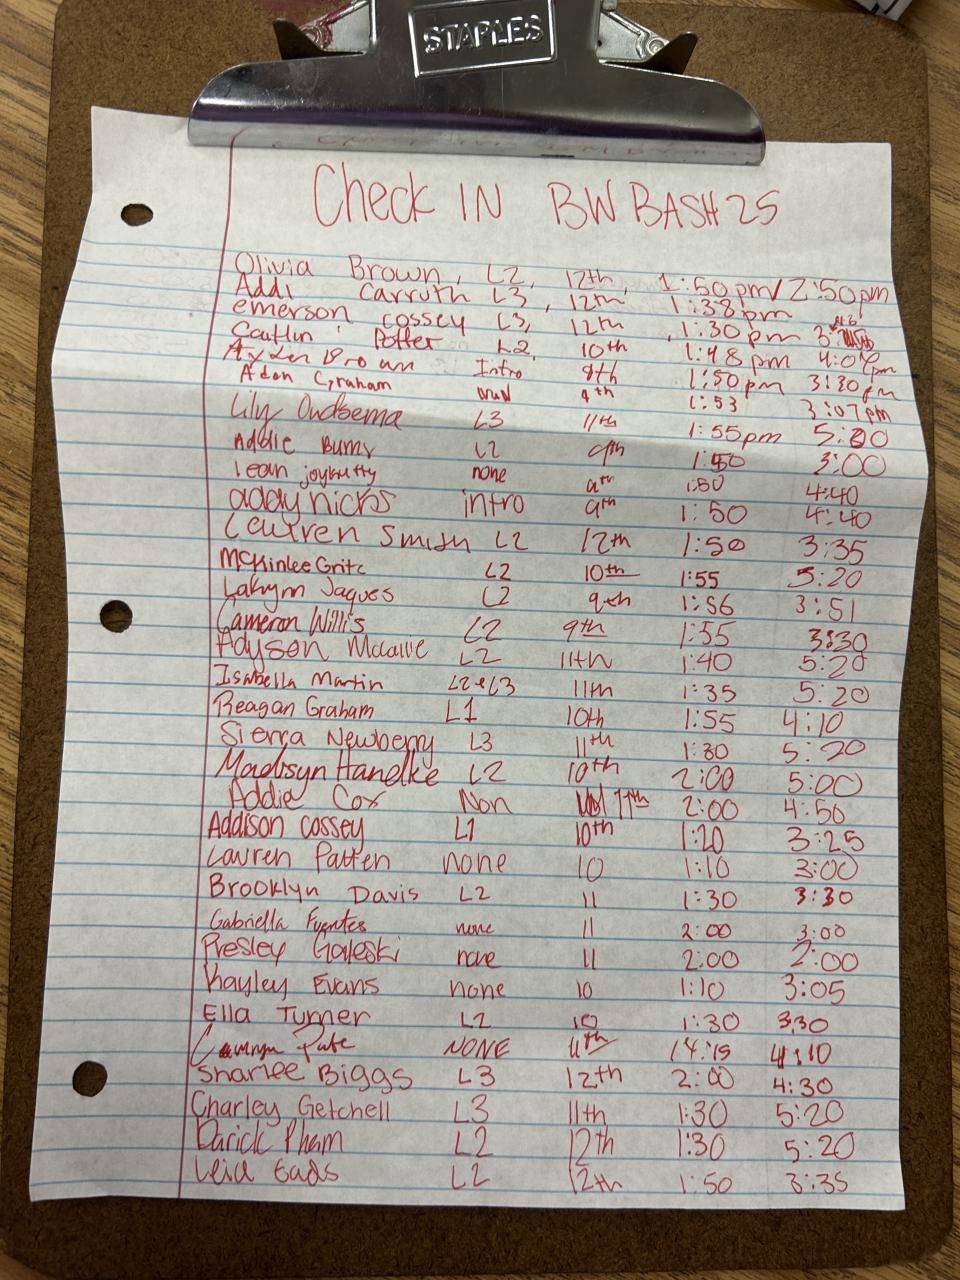 STAPLES
Check IN BW BASH 25
Olivia Brown, L2, 12th, 1:50pm/2:50pm
Addi Carruth L3, 12th 1:38pm
emerson cossey L3, 12th 1:30pm
Caitlin Potter L2, 10th 1:48pm 4:04pm
Ayden Brown Intro 9th 1:50pm 3:30pm
Adon Graham 9th 1:53 3:07pm
Lily L3 11th 1:55pm 5:00
Addie L2 9th 1:50 3:00
none 9th 1:50 4:40
addy nicks intro 9th 1:50 4:40
Lauren Smith L2 12th 1:50 3:35
Mckinlee L2 10th 1:55 5:20
Lakynn Jaques L2 9th 1:56 3:51
Cameron Willis L2 9th 1:55 3:30
Adyson L2 11th 1:40 5:20
Isabella Martin L2+L3 11th 1:35 5:20
Reagan Graham L1 10th 1:55 4:10
Sierra Newberry L3 11th 1:30 5:20
Madisyn Handke L2 10th 2:00 5:00
Addie Cox Non 11th 2:00 4:50
Addison cossey L1 10th 1:20 3:25
Lauren Patten none 10 1:10 3:00
Brooklyn Davis L2 11 1:30 3:30
Gabriella Fuentes none 11 2:00 3:00
Presley none 11 2:00 2:00
Kayley Evans none 10 1:10 3:05
Ella Turner L2 10 1:30 3:30
Pate NONE 11th 4:10
Sharlee Biggs L3 12th 2:00 4:30
Charley Getchell L3 11th 1:30 5:20
Darick Pham L2 12th 1:30 5:20
Eads L2 12th 1:50 3:35